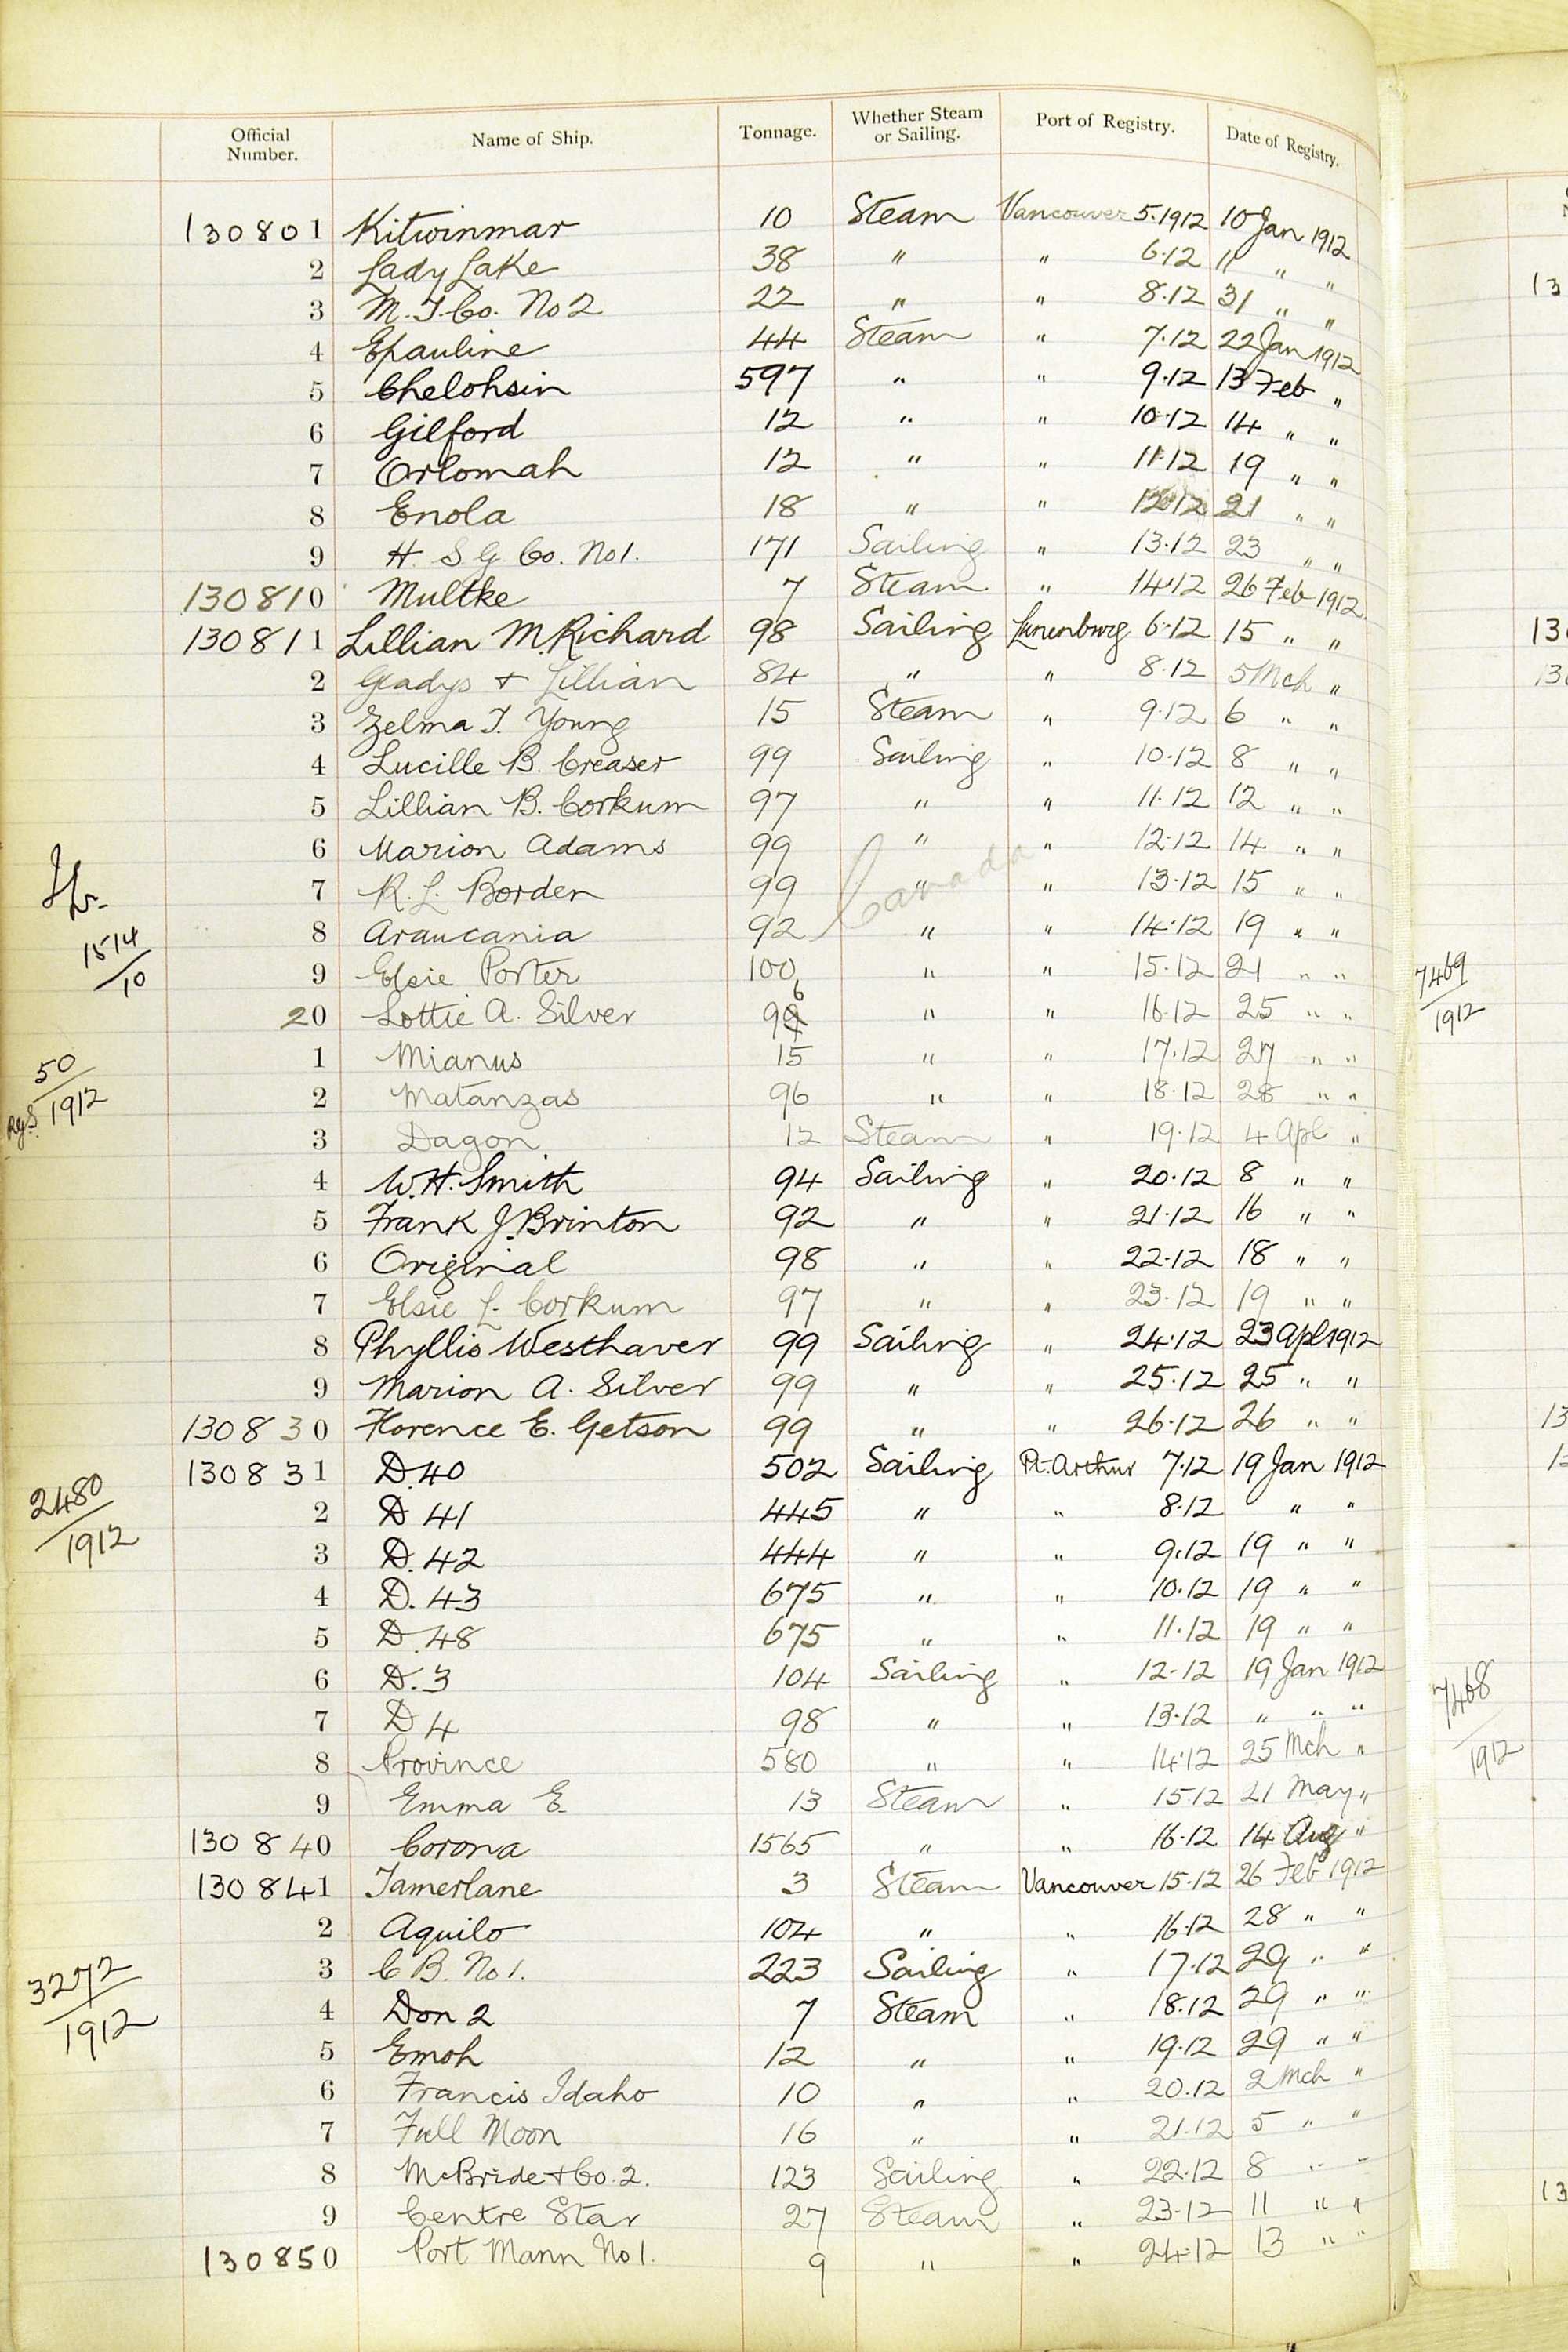 Official Number. Name of Ship. Tonnage. Whether Steam or Sailing. Port of Registry. Date of Registry.
130801 Kitwinmar 10 Steam Vancouver 5.1912 10 Jan 1912
2 Lady Lake 38 " " 6.12 11 " "
3 M.T.Co. No 2 22 " " 8.12 31 " "
4 Epauline 44 Steam " 7.12 22 Jan 1912
5 Chelohsin 597 " " 9.12 13 Feb "
6 Gilford 12 " " 10.12 14 " "
7 Orlomah 12 " " 11.12 19 " "
8 Enola 18 " " 12.12 21 " "
9 H. S. G. Co. No 1. 171 Sailing " 13.12 23 " "
130810 Multke 7 Steam " 14.12 26 Feb 1912
130811 Lillian M. Richard 98 Sailing Lunenburg 6.12 15 " "
2 Gladys + Lillian 84 " " 8.12 5 Mch "
3 Zelma T. Young 15 Steam " 9.12 6 " "
4 Lucille B. Creaser 99 Sailing " 10.12 8 " "
5 Lillian B. Corkum 97 " " 11.12 12 " "
6 Marion Adams 99 " " 12.12 14 " "
Canada
7 R. L. Borden 99 " " 13.12 15 " "
8 Araucania 92 " " 14.12 19 " "
1514/10
9 Elsie Porter 100 " " 15.12 21 " "
7469/1912
20 Lottie A. Silver 96 " " 16.12 25 " "
1 Mianus 15 " " 17.12 27 " "
50/1912
2 Matanzas 96 " " 18.12 28 " "
3 Dagon 12 Steam " 19.12 4 Apl "
4 W. H. Smith 94 Sailing " 20.12 8 " "
5 Frank J. Brinton 92 " " 21.12 16 " "
6 Original 98 " " 22.12 18 " "
7 Elsie L. Corkum 97 " " 23.12 19 " "
8 Phyllis Westhaver 99 Sailing " 24.12 23 Apl 1912
9 Marion A. Silver 99 " " 25.12 25 " "
130830 Florence E. Getson 99 " " 26.12 26 " "
130831 D. 40 502 Sailing Pt. Arthur 7.12 19 Jan 1912
2480/1912
2 D 41 445 " " 8.12 " "
3 D. 42 444 " " 9.12 19 " "
4 D. 43 675 " " 10.12 19 " "
5 D. 48 675 " " 11.12 19 " "
6 D. 3 104 Sailing " 12.12 19 Jan 1912
7468/1912
7 D 4 98 " " 13.12 " " "
8 Province 580 " " 14.12 25 Mch "
9 Emma E 13 Steam " 15.12 21 May "
130840 Corona 1565 " " 16.12 14 Aug "
130841 Tamerlane 3 Steam Vancouver 15.12 26 Feb 1912
2 Aquilo 104 " " 16.12 28 " "
3 C B. No 1. 223 Sailing " 17.12 29 " "
3272/1912
4 Don 2 7 Steam " 18.12 29 " "
5 Emoh 12 " " 19.12 29 " "
6 Francis Idaho 10 " " 20.12 2 Mch "
7 Full Moon 16 " " 21.12 5 " "
8 McBride + Co. 2. 123 Sailing " 22.12 8 " "
9 Centre Star 27 Steam " 23.12 11 " "
130850 Port Mann No 1. 9 " " 24.12 13 " "